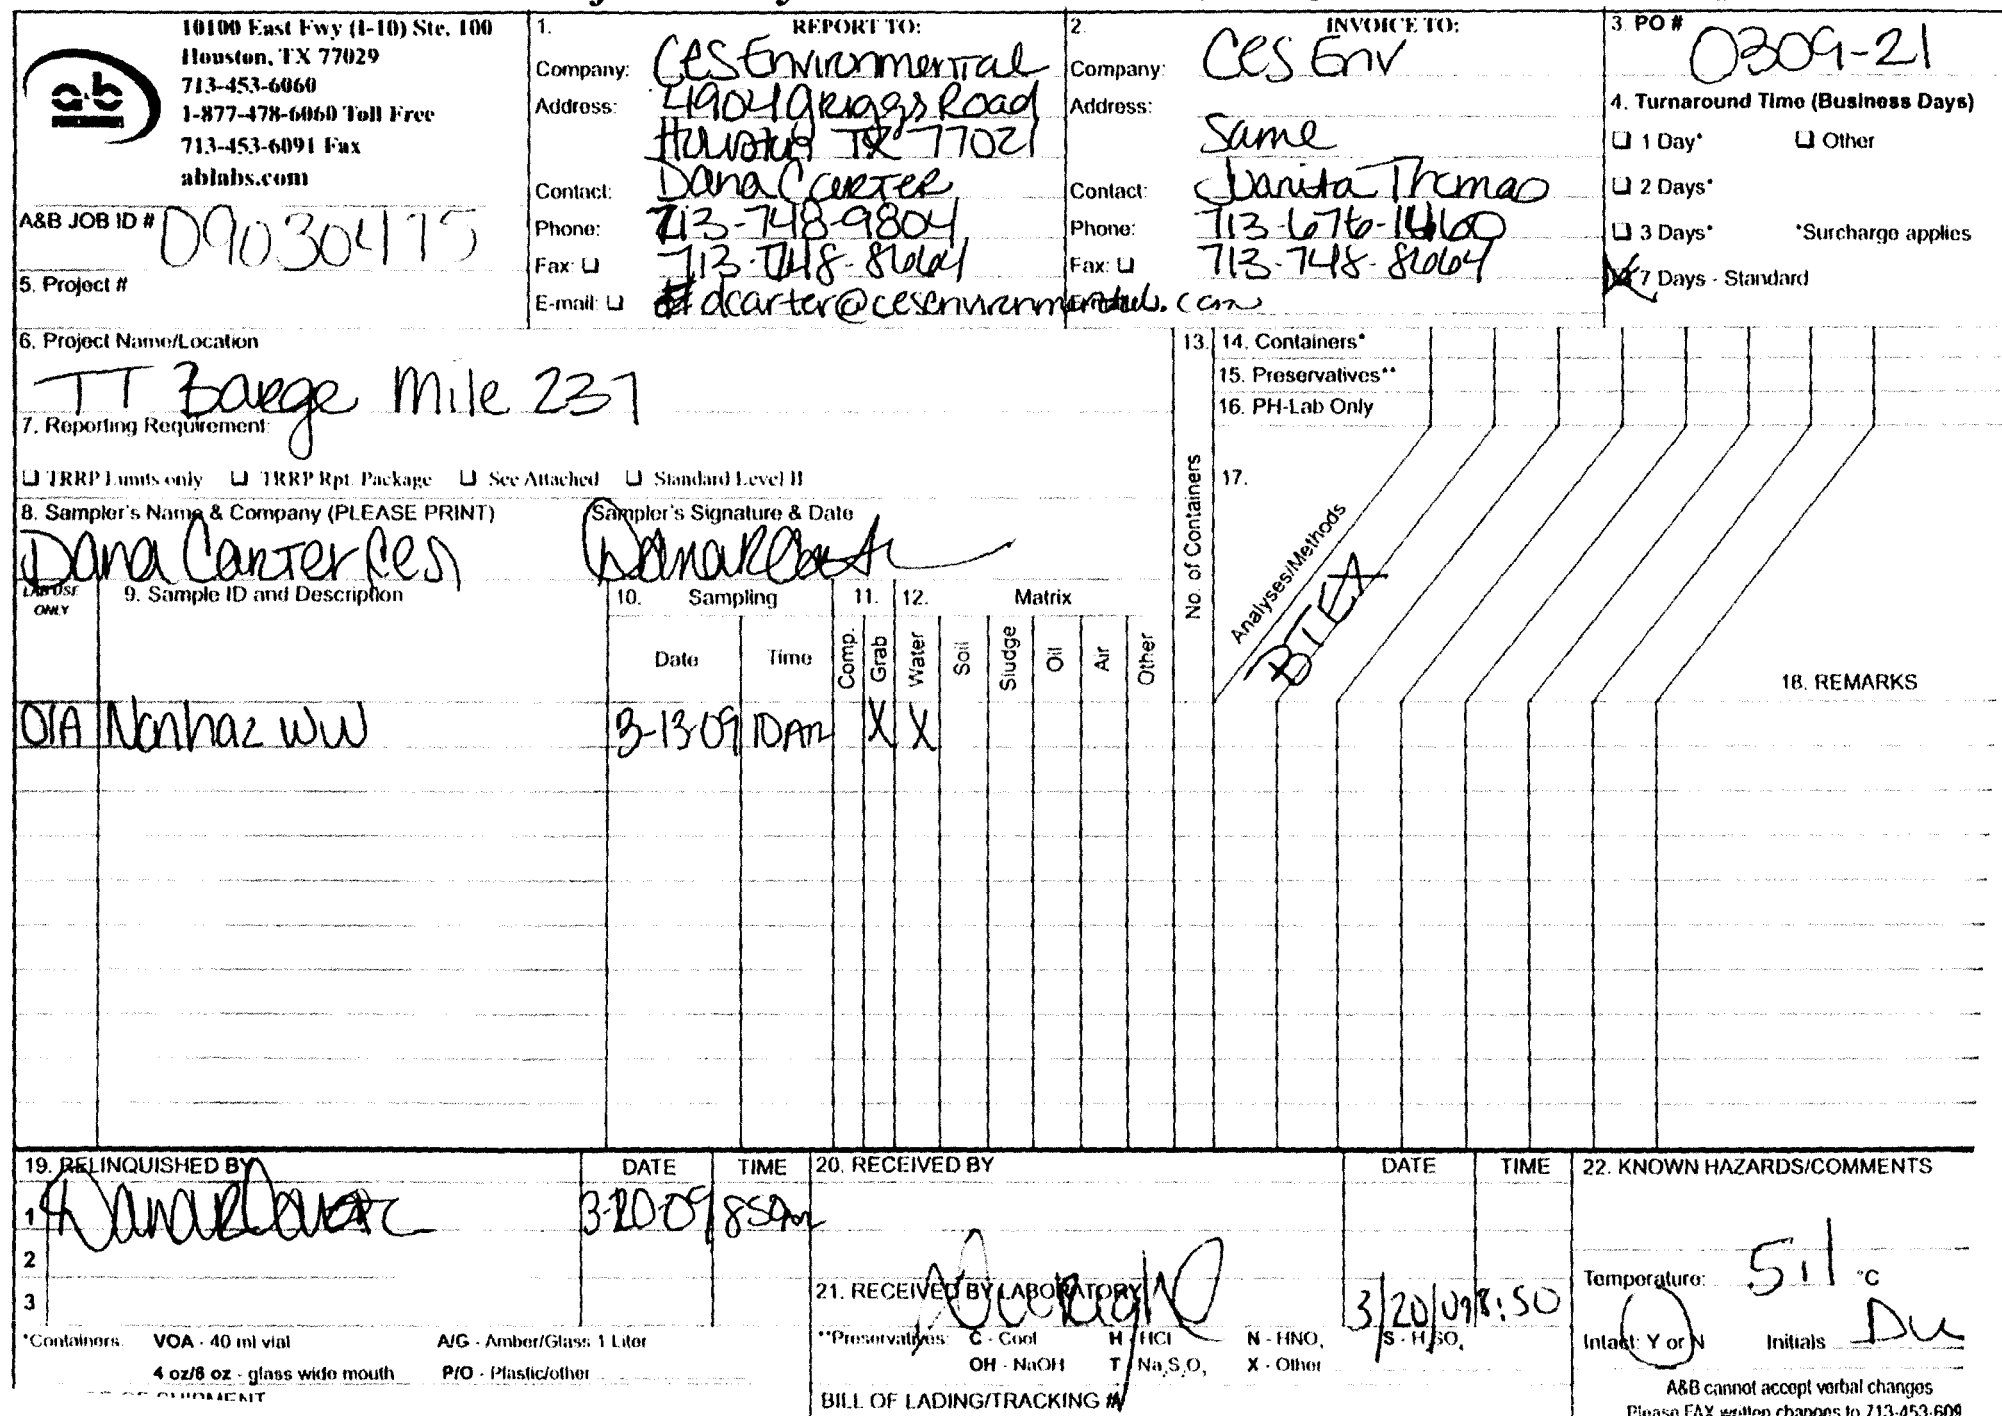 10100 East Fwy (I-10) Ste. 100
Houston, TX 77029
713-453-6060
1-877-478-6060 Toll Free
713-453-6091 Fax
ablabs.com
a&b
A&B JOB ID # 09030475
5. Project #
1. REPORT TO:
Company: CES Environmental
Address: 4904 Griggs Road
Houston TX 77021
Contact: Dana Carter
Phone: 713-748-9804
Fax: 713-748-8664
E-mail: dcarter@cesenvironmental.com
2. INVOICE TO:
Company: CES Env
Address:
Same
Contact: Juanita Thomas
Phone: 713-676-1460
Fax: 713-748-8664
3. PO #
0309-21
4. Turnaround Time (Business Days)
1 Day* Other
2 Days*
3 Days* *Surcharge applies
X 7 Days - Standard
6. Project Name/Location
TT Barge Mile 237
7. Reporting Requirement:
TRRP Limits only TRRP Rpt. Package See Attached Standard Level II
8. Sampler's Name & Company (PLEASE PRINT) Sampler's Signature & Date
Dana Carter CES
13. No. of Containers
14. Containers*
15. Preservatives**
16. PH-Lab Only
17.
Analyses/Methods
BTEX
18. REMARKS
LAB USE ONLY
9. Sample ID and Description
10. Sampling
Date Time
11. Comp. Grab
12. Matrix
Water Soil Sludge Oil Air Other
01A Nonhaz WW 3-13-09 10AM X X
19. RELINQUISHED BY DATE TIME
1 3-20-09 850am
2
3
20. RECEIVED BY DATE TIME
21. RECEIVED BY LABORATORY 3/20/09 8:50
22. KNOWN HAZARDS/COMMENTS
Temperature: 5.1 °C
Intact: Y or N Initials
*Containers: VOA - 40 ml vial A/G - Amber/Glass 1 Liter
4 oz/8 oz - glass wide mouth P/O - Plastic/other
**Preservatives: C - Cool H - HCl N - HNO, S - H2SO,
OH - NaOH T - Na2S2O, X - Other
BILL OF LADING/TRACKING #
A&B cannot accept verbal changes
Please FAX written changes to 713-453-609